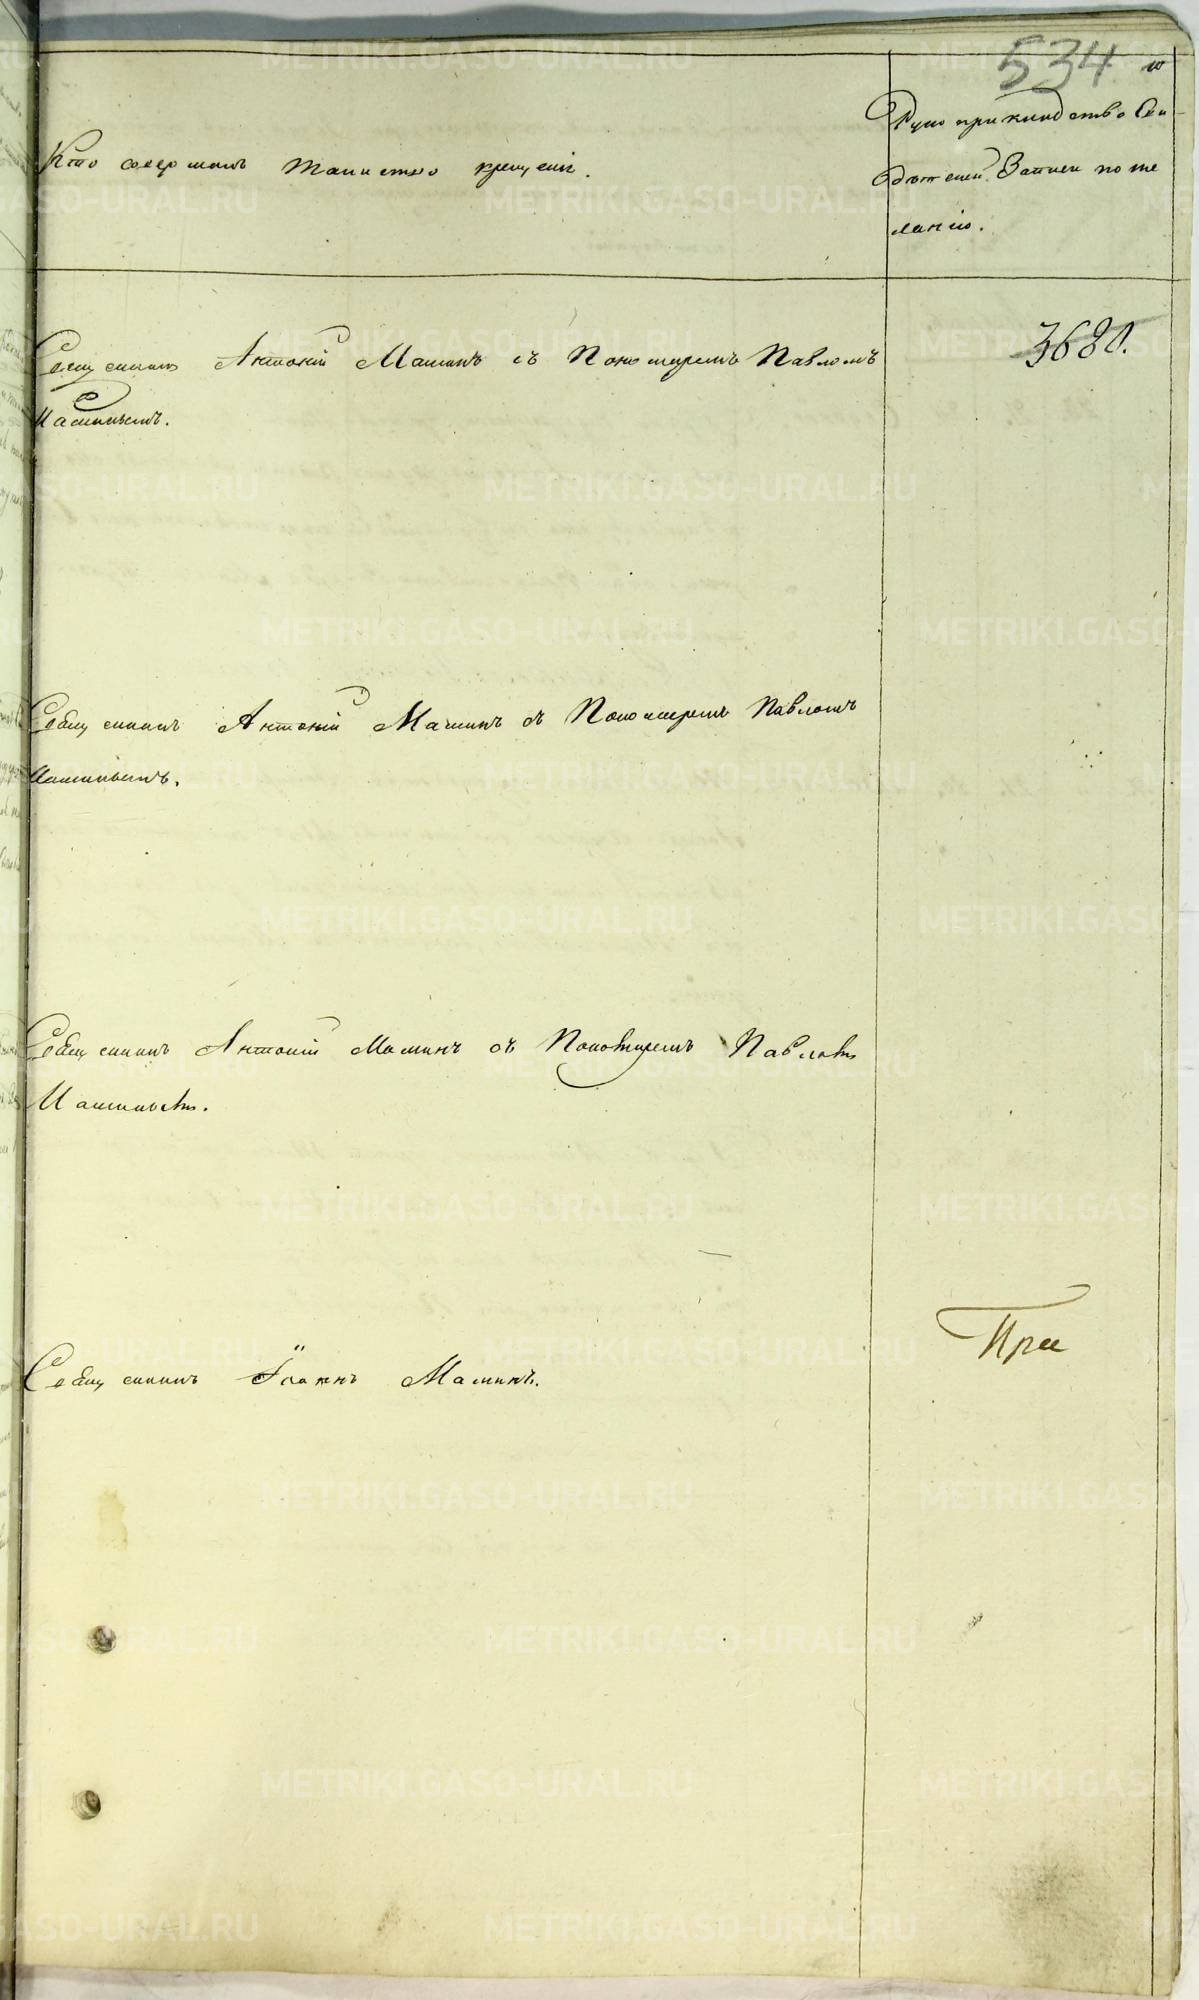 534
Кто совершалъ таинство крещенія.
Рукоприкладство Сви
дѣтелей Записи по же
ланію.
Священникъ Антоній Маминъ съ Пономаремъ Павломъ
Маминымъ.
3680.
Священникъ Антоній Маминъ съ Пономаремъ Павломъ
Маминымъ.
Священникъ Антоній Маминъ съ Пономаремъ Павломъ
Маминымъ.
При
Священникъ Іоаннъ Маминъ.
METRIKI.GASO-URAL.RU